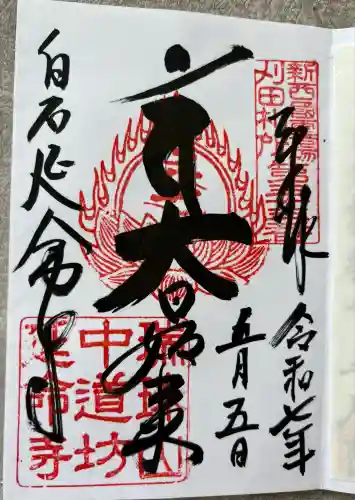 奉拝
令和七年
五月五日
大日如来
白石延命寺
新西国
刈田
中道坊
延命寺